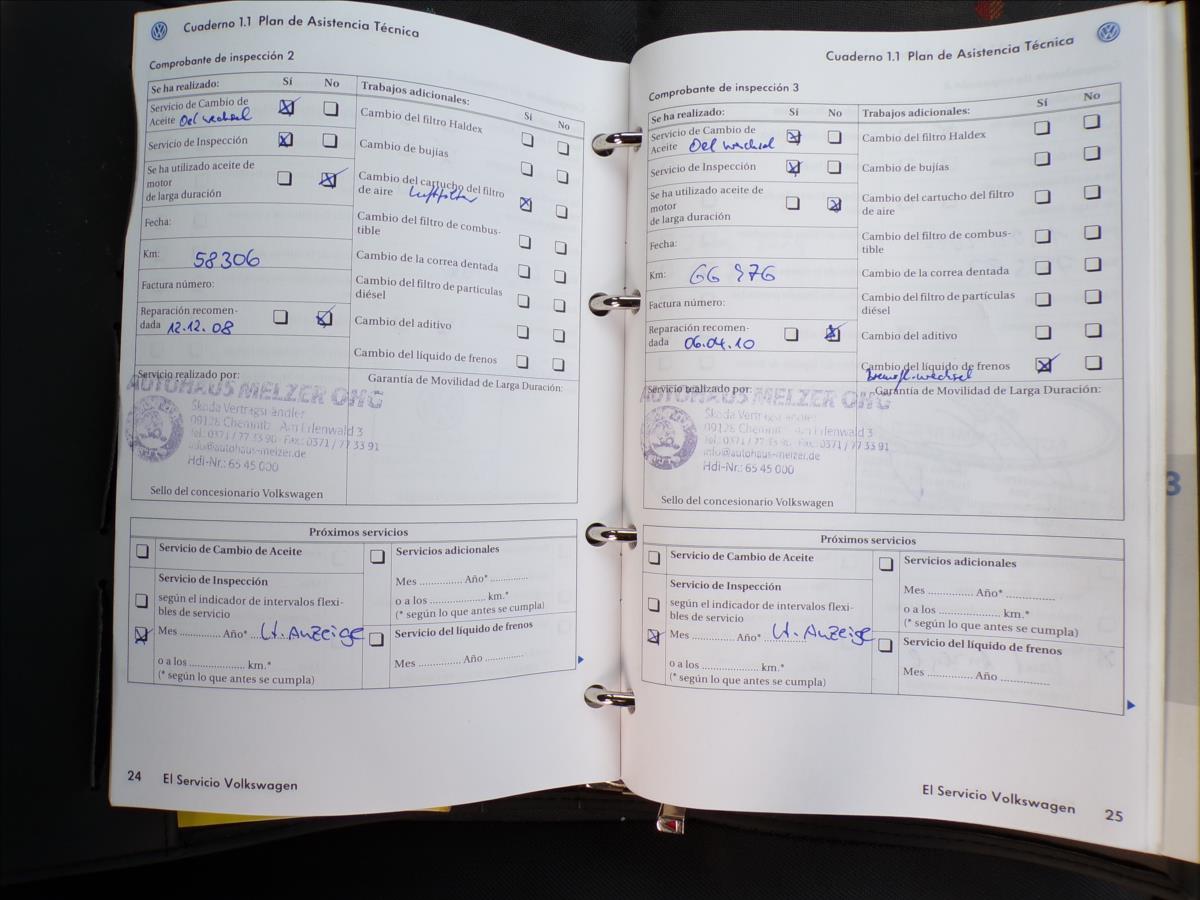 Cuaderno 1.1 Plan de Asistencia Técnica
Comprobante de inspección 2
Se ha realizado: Sí No
Servicio de Cambio de
Aceite Oelwechsel
Servicio de Inspección
Se ha utilizado aceite de
motor
de larga duración
Fecha:
Km: 58306
Factura número:
Reparación recomen-
dada 12.12.08
Trabajos adicionales: Sí No
Cambio del filtro Haldex
Cambio de bujías
Cambio del cartucho del filtro
de aire Luftfilter
Cambio del filtro de combus-
tible
Cambio de la correa dentada
Cambio del filtro de partículas
diésel
Cambio del aditivo
Cambio del líquido de frenos
Servicio realizado por:
AUTOHAUS MELZER OHG
Skoda Vertragshändler
09128 Chemnitz Am Erlenwald 3
Tel.: 0371 / 77 33 90 - Fax: 0371 / 77 33 91
info@autohaus-melzer.de
Hdl-Nr.: 65 45 000
Sello del concesionario Volkswagen
Garantía de Movilidad de Larga Duración:
Próximos servicios
Servicio de Cambio de Aceite
Servicio de Inspección
según el indicador de intervalos flexi-
bles de servicio
Mes .............. Año* lt. Anzeige
o a los ..................... km.*
(* según lo que antes se cumpla)
Servicios adicionales
Mes .............. Año* ............
o a los ..................... km.*
(* según lo que antes se cumpla)
Servicio del líquido de frenos
Mes .............. Año ..............
24 El Servicio Volkswagen
Cuaderno 1.1 Plan de Asistencia Técnica
Comprobante de inspección 3
Se ha realizado: Sí No
Servicio de Cambio de
Aceite Oelwechsel
Servicio de Inspección
Se ha utilizado aceite de
motor
de larga duración
Fecha:
Km: 66 976
Factura número:
Reparación recomen-
dada 06.04.10
Trabajos adicionales: Sí No
Cambio del filtro Haldex
Cambio de bujías
Cambio del cartucho del filtro
de aire
Cambio del filtro de combus-
tible
Cambio de la correa dentada
Cambio del filtro de partículas
diésel
Cambio del aditivo
Cambio del líquido de frenos
Bremsfl. wechsel
Servicio realizado por:
AUTOHAUS MELZER OHG
Skoda Vertragshändler
09128 Chemnitz Am Erlenwald 3
Tel.: 0371 / 77 33 90 - Fax: 0371 / 77 33 91
info@autohaus-melzer.de
Hdl-Nr.: 65 45 000
Sello del concesionario Volkswagen
Garantía de Movilidad de Larga Duración:
Próximos servicios
Servicio de Cambio de Aceite
Servicio de Inspección
según el indicador de intervalos flexi-
bles de servicio
Mes .............. Año* lt. Anzeige
o a los ..................... km.*
(* según lo que antes se cumpla)
Servicios adicionales
Mes .............. Año* ..............
o a los ..................... km.*
(* según lo que antes se cumpla)
Servicio del líquido de frenos
Mes .............. Año ..............
El Servicio Volkswagen 25
3